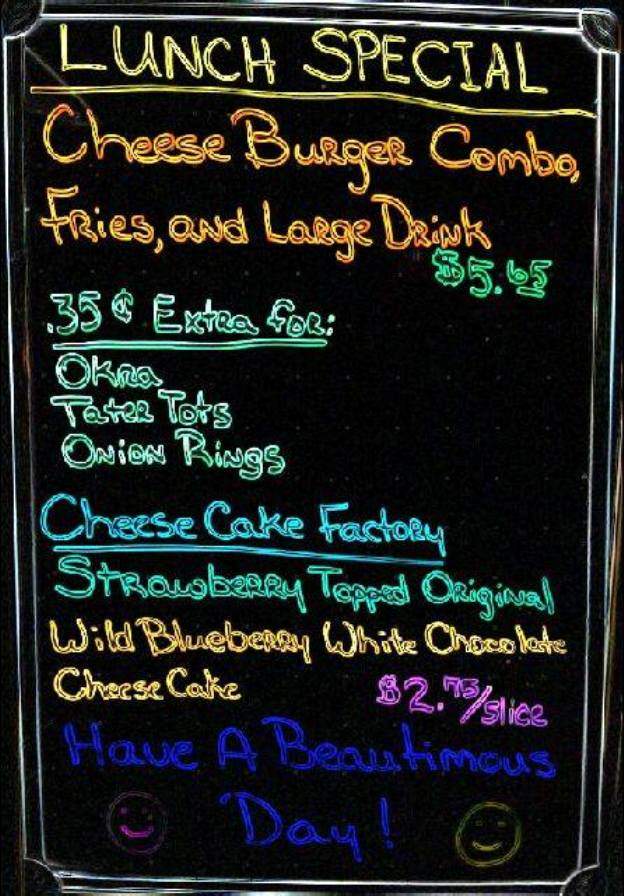 LUNCH SPECIAL
Cheese Burger Combo,
Fries, and Large Drink
$5.65
.35¢ Extra for:
Okra
Tater Tots
Onion Rings
Cheese Cake Factory
Strawberry Topped Original
Wild Blueberry White Chocolate
Cheese Cake
$2.75/slice
Have A Beautimous
Day!